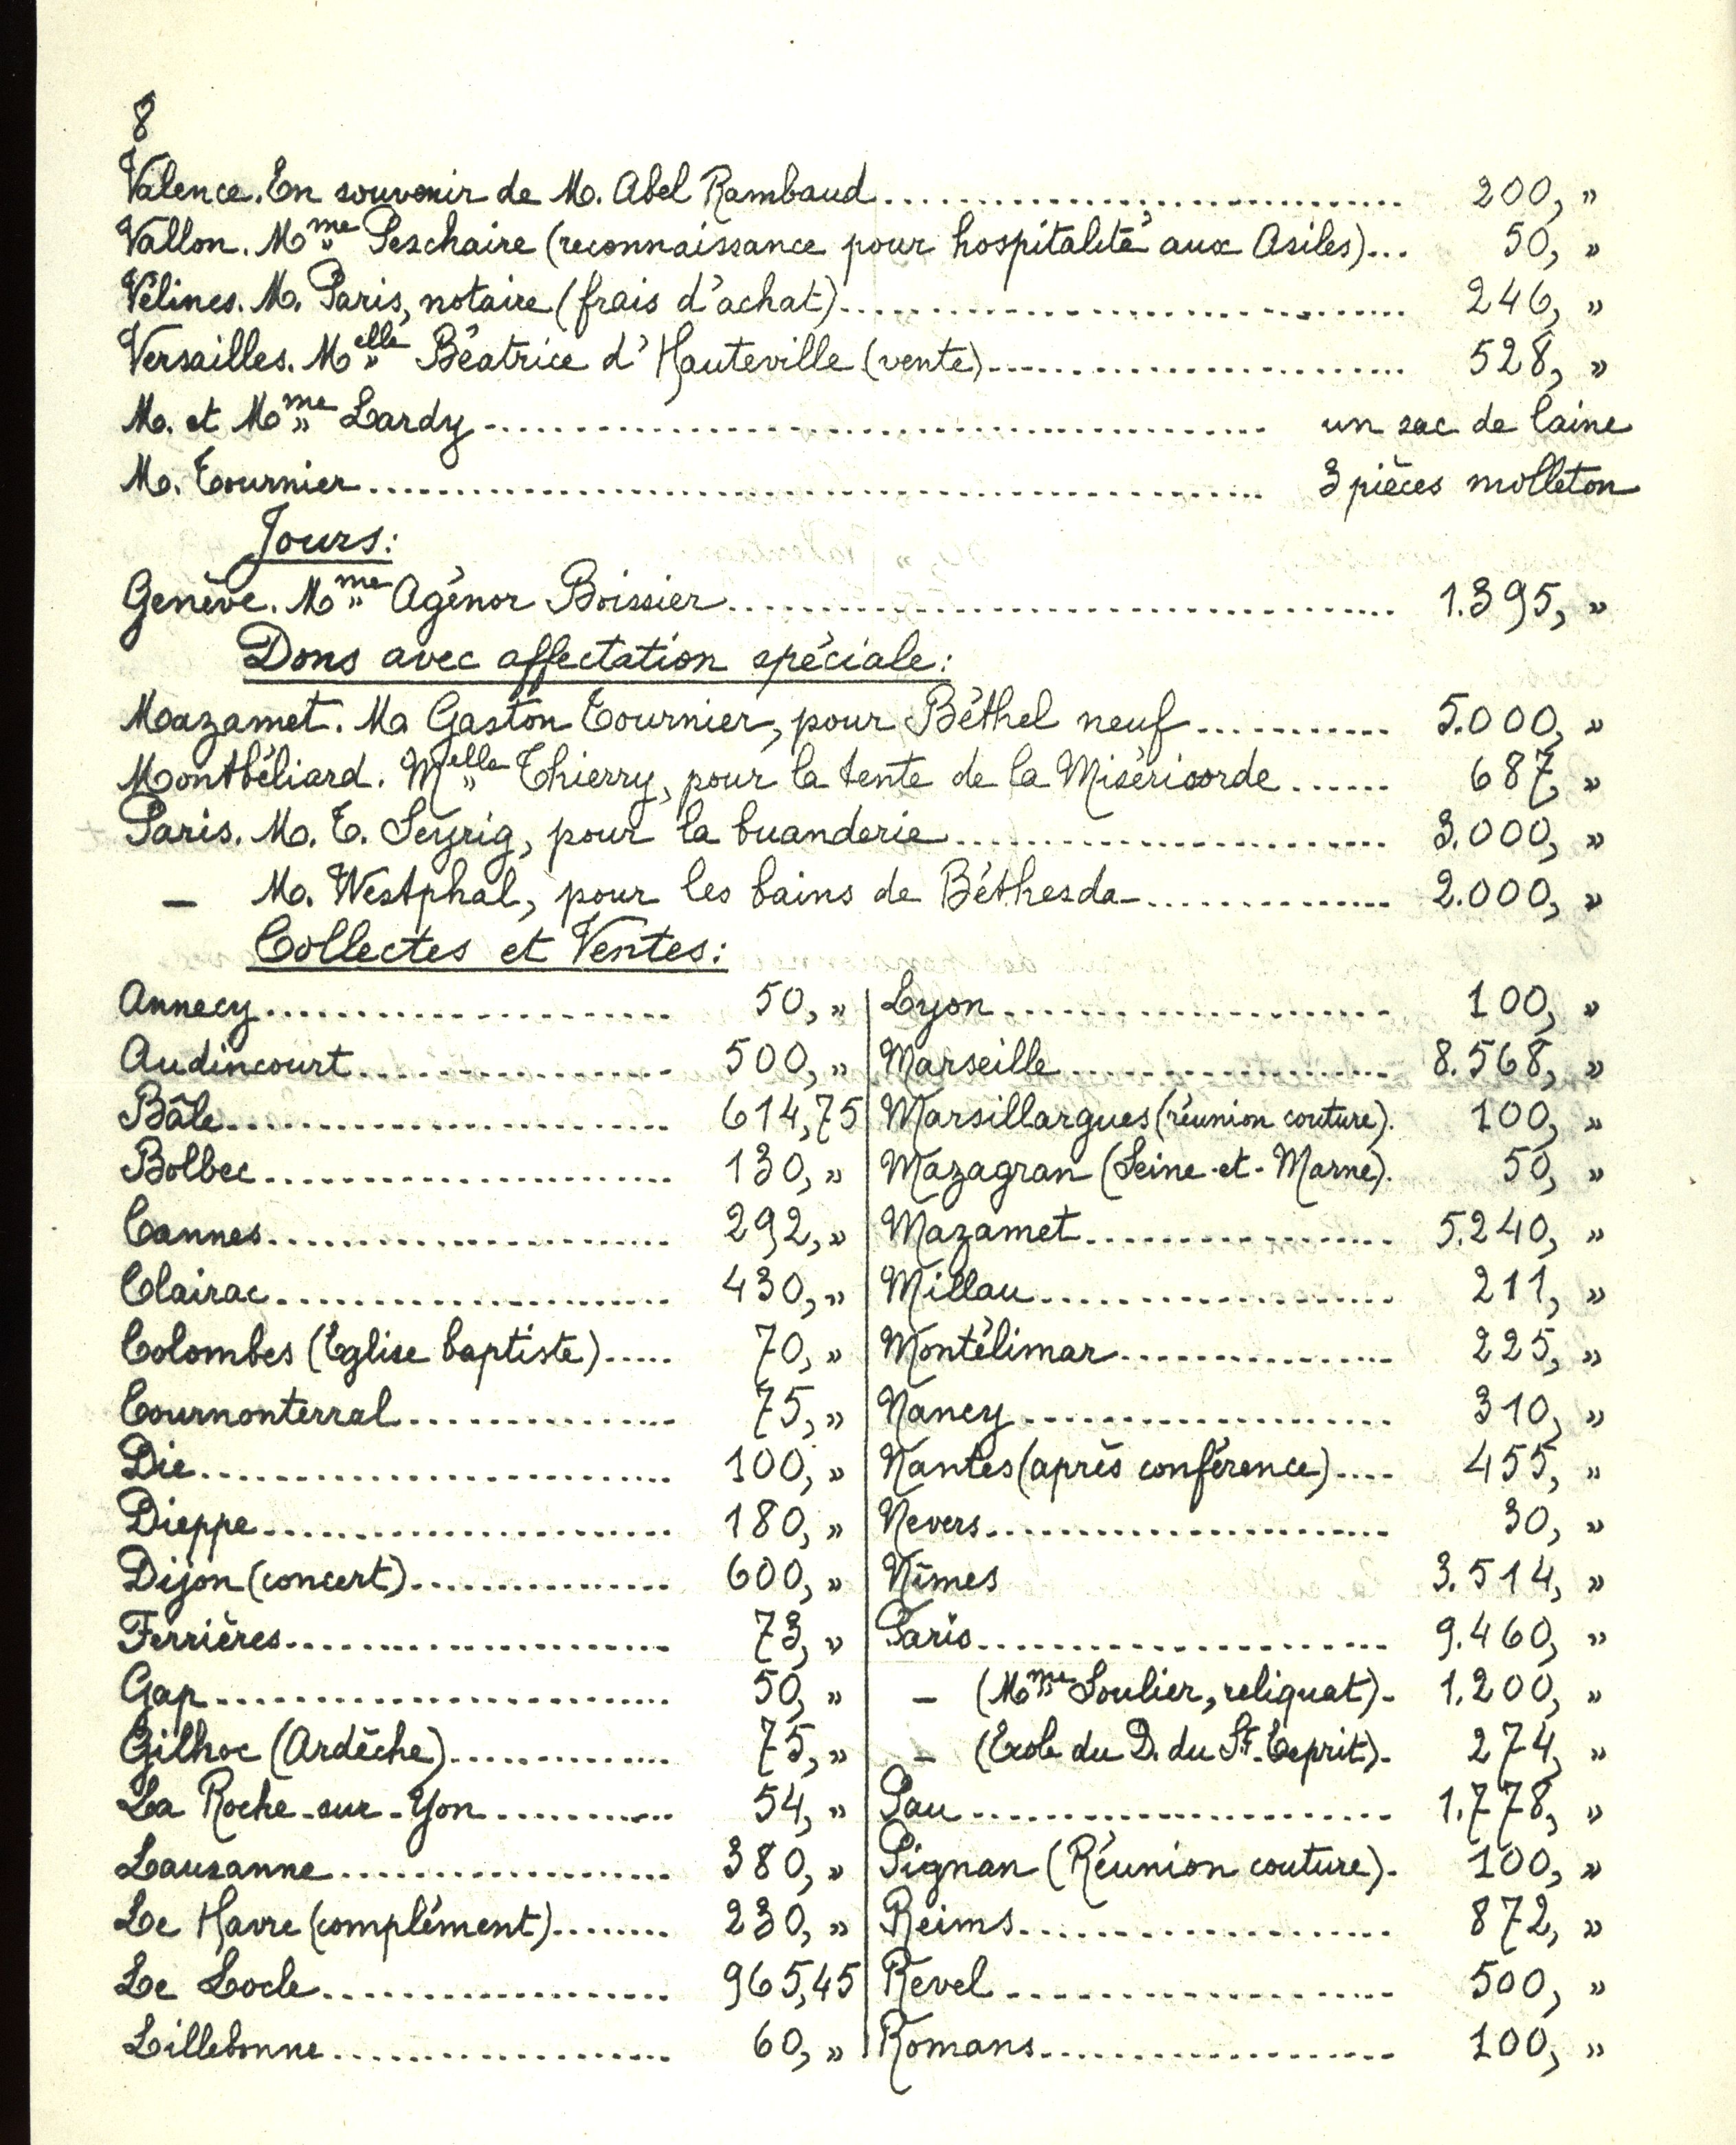 8
Valence. En souvenir de M. Abel Rambaud............ 200, "
Vallon. Mme Peschaire (reconnaissance pour hospitalité aux Asiles)... 50, "
Vélines. M. Paris, notaire (frais d'achat)............ 246, "
Versailles. Melle Béatrice d'Hauteville (vente)............ 528, "
M. et Mme Lardy............ un sac de laine
M. Tournier............ 3 pièces molleton
Jours:
Genève. Mme Agénor Boissier............ 1.395, "
Dons avec affectation spéciale:
Mazamet. M. Gaston Tournier, pour Béthel neuf............ 5.000, "
Montbéliard. Melle Thierry, pour la tente de la Miséricorde...... 687, "
Paris. M. E. Seyrig, pour la buanderie............ 3.000, "
— M. Westphal, pour les bains de Béthesda............ 2.000, "
Collectes et Ventes:
Annecy............ 50, "
Audincourt............ 500, "
Bâle............ 614,75
Bolbec............ 130, "
Cannes............ 292, "
Clairac............ 430, "
Colombes (Eglise baptiste)..... 70, "
Cournonterral............ 75, "
Die............ 100, "
Dieppe............ 180, "
Dijon (concert)............ 600, "
Ferrières............ 73, "
Gap............ 50, "
Gilhoc (Ardèche)............ 75, "
La Roche-sur-Yon............ 54, "
Lausanne............ 380, "
Le Havre (complément)........ 230, "
Le Locle............ 965,45
Lillebonne............ 60, "
Lyon............ 100, "
Marseille............ 8.568, "
Marsillargues (réunion couture). 100, "
Mazagran (Seine-et-Marne). 50, "
Mazamet............ 5.240, "
Millau............ 211, "
Montélimar............ 225, "
Nancy............ 310, "
Nantes (après conférence).... 455, "
Nevers............ 30, "
Nîmes 3.514, "
Paris............ 9.460, "
— (Mme Soulier, reliquat). 1.200, "
— (Ecole du D. du St-Esprit). 274, "
Pau............ 1.778, "
Pignan (Réunion couture). 100, "
Reims............ 872, "
Revel............ 500, "
Romans............ 100, "